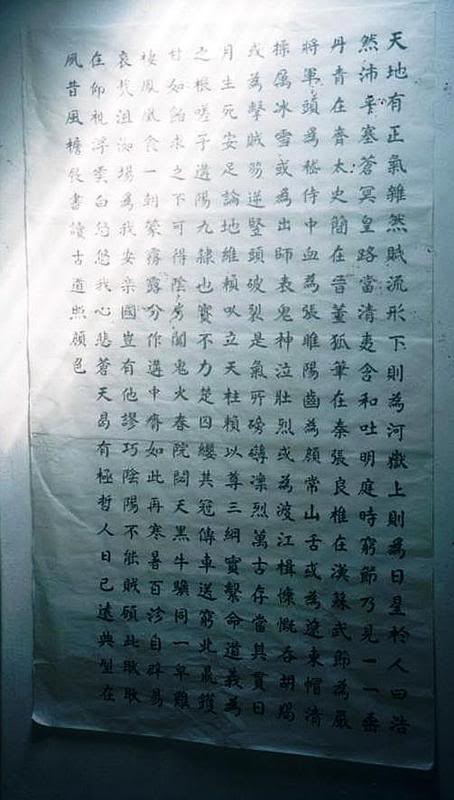 天地有正氣雜然賦流形下則為河嶽上則為日星於人曰浩
然沛乎塞蒼冥皇路當清夷含和吐明庭時窮節乃見一一垂
丹青在齊太史簡在晉董狐筆在秦張良椎在漢蘇武節為嚴
將軍頭為嵇侍中血為張睢陽齒為顏常山舌或為遼東帽清
操厲冰雪或為出師表鬼神泣壯烈或為渡江楫慷慨吞胡羯
或為擊賊笏逆豎頭破裂是氣所磅礴凜烈萬古存當其貫日
月生死安足論地維賴以立天柱賴以尊三綱實繫命道義為
之根嗟予遘陽九隸也實不力楚囚纓其冠傳車送窮北鼎鑊
甘如飴求之不可得陰房闃鬼火春院閟天黑牛驥同一皁雞
棲鳳凰食一朝蒙霧露分作遘中瘠如此再寒暑百沴自辟易
哀哉沮洳場為我安樂國豈有他謬巧陰陽不能賊顧此耿耿
在仰視浮雲白悠悠我心悲蒼天曷有極哲人日已遠典型在
夙昔風檐展書讀古道照顏色